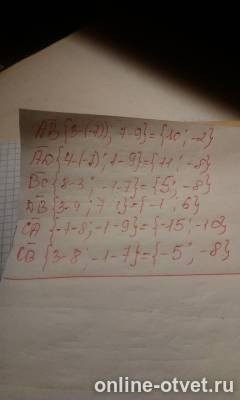 AB {3-(-7); 7-9}={10; -2}
AD {4-(-7); 1-9}={11; -8}
BC {8-3; -1-7}={5; -8}
DB {3-4; 7 1}={-1; 6}
CA {-7-8; -1-9}={-15; -10}
CB {3-8; -1-7}={-5; -8}
online-otvet.ru